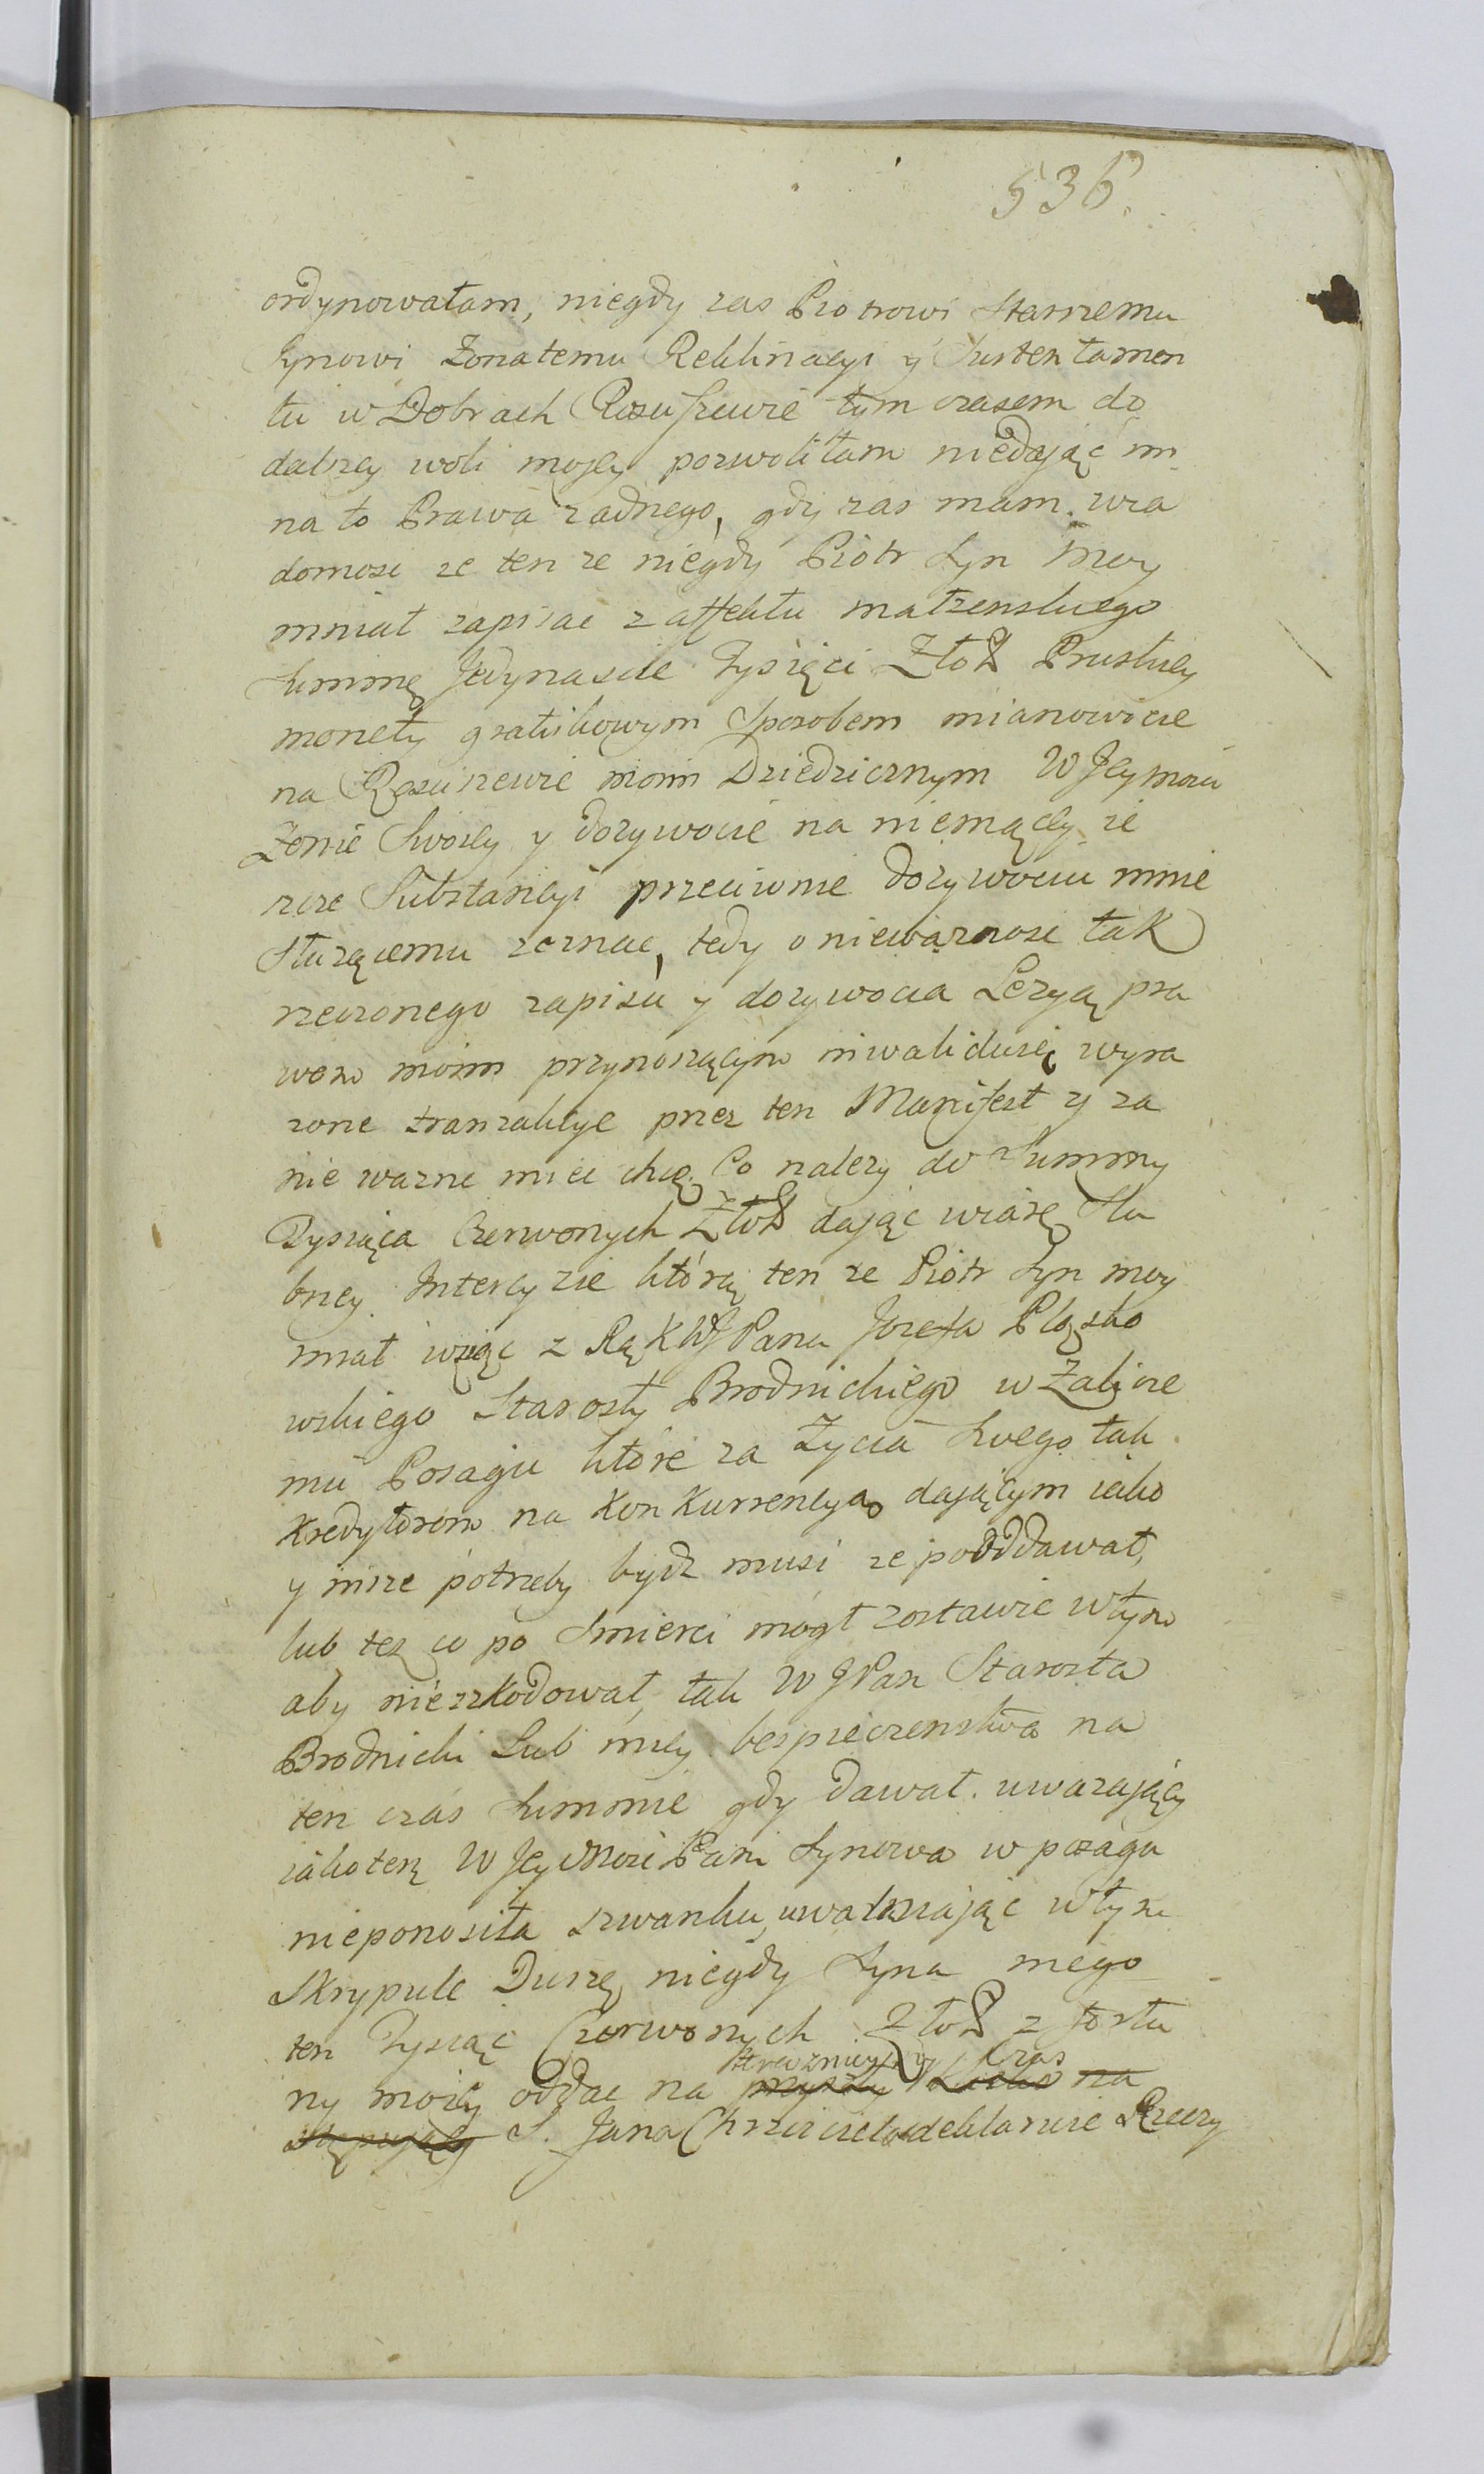 536.
ordynowałam, niegdy zas Piotrowi Starszemu
Synowi Zonatemu Reklinacyi y Sustentamen
tu w Dobrach Ręszuszewie tym czasem do
dalszey woli mojey pozwoliłam niedając mu
na to Prawa zadnego, gdy zas mam wia
domosc ze ten ze niegdy Piotr Syn moy
mniał zapisac z affektu małzenskiego
Summę Jedynascie Tysięci Zło Pruskiey
monety gratisłowym Sposobem mianowicie
na Ręszuszewie moim Dziedzicznym W Jeymosci
Zonie Swoiey y dozywocie na niemącey ie
szcze Substancyi przeciwnie dozywociu mnie
Słuzącemu zeznac, tedy o niewaznosc tak
rzeczonego zapisu y dozywocia Lezyą pra
wom moim przynoszącym inwaliduię wyra
zone tranzakcye przez ten Manifest y za
nie wazne miec chcę. Co nalezy do Summy
Tysiąca Czerwonych Zło dając wiarę Slu
bney Intercyzie którą ten ze Piotr Syn moy
miał wziąc z Rąk WJPana Jozefa Pląsko
wskiego Starosty Brodnickiego w Zalicze
niu Posagu które za Zycia Swego tak
Kredytorom na Konkurrencyą dającym iako
y insze potrzeby bydz musi ze poddawał,
lub tez co po Smierci mógł zostawic w tym
aby nieszkodował, tak W JPan Starosta
Brodnicki Lub miey bespieczenstwa na
ten czas Summie gdy dawał uwazający
iako tez W Jey Mosci Pani Synowa w posagu
nieponosiła szwanku, uwalniając w tym
Skrypule Duszę niegdy Syna mego
ten Tysiąc Czerwonych Zło z fortu
Czas
ny moiey oddac na przyszły na
stępujący S. Jana Chrzciciela deklaruie Rzeczy